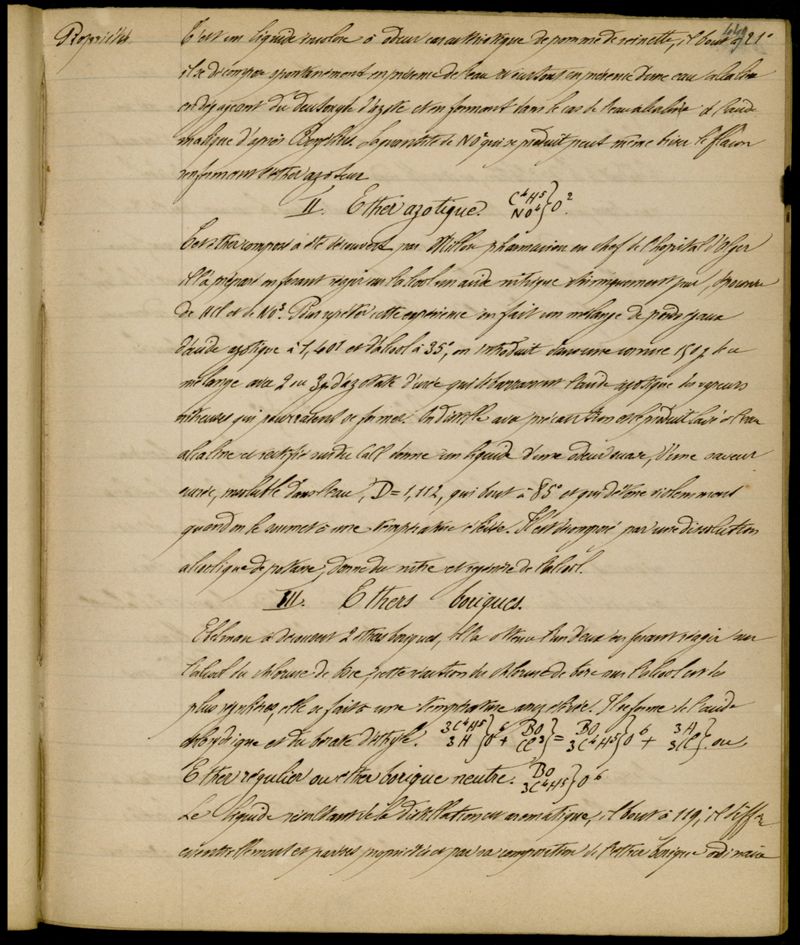 449
Propriétés. C'est un liquide incolore à odeur caractéristique de pomme de reinette, il bout à 21°
il se décompose spontanément en présence de l'eau et surtout en présence d'une eau alcaline
en dégageant du deutoxyde d'azote et en formant dans le cas de l'eau alcaline de l'acide
malique d'après Berzélius. La quantité de NO² qui se produit peut même briser le flacon
renfermant l'éther azoteux
II. Ether azotique. C⁴H⁵ NO⁴ } O².
Cet éther composé a été découvert par Millon pharmacien en chef de l'hôpital d'Alger
il l'a préparé en faisant réagir sur l'alcool un acide nitrique chimiquement pur, dépourvu
de HCl et de NO³. Pour répéter cette expérience on fait un mélange de poids égaux
d'acide azotique à 1,401 et d'alcool à 35°, on introduit dans une cornue 150g de ce
mélange avec 2 ou 3g d'azotate d'urée qui débarrassent l'acide azotique des vapeurs
nitreuses qui pourraient se former. On distille avec précaution et le produit lavé à l'eau
alcaline et rectifié sur du CaCl donne un liquide d'une odeur suave, d'une saveur
sucrée, insoluble dans l'eau, D = 1,112, qui bout à 85° et qui détone violemment
quand on le soumet à une température élevée. Il est décomposé par une dissolution
alcoolique de potasse, donne du nitre et régénère de l'alcool.
III. Ethers boriques.
Ebelmen a découvert 2 éthers boriques, il a obtenu l'un d'eux en faisant réagir sur
l'alcool du chlorure de bore, cette réaction du chlorure de bore sur l'alcool est des
plus régulières, elle se fait à une température assez élevée. Il se forme de l'acide
chlorhydrique et du borate d'éthyle. 3C⁴H⁵ 3H } O⁶ + BO Cl³ } = BO 3C⁴H⁵ } O⁶ + 3H 3Cl } ou
Ether régulier ou éther borique neutre. BO 3C⁴H⁵ } O⁶
Le liquide résultant de la distillation est aromatique, il bout à 119°, il diffère
essentiellement et par ses propriétés et par sa composition de l'éther borique ordinaire